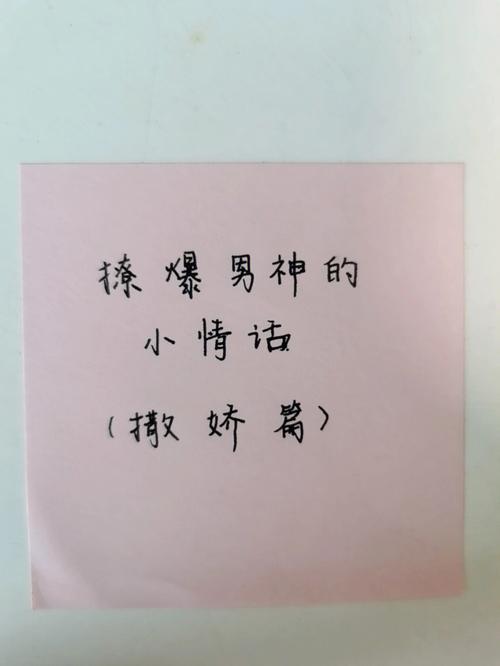 撩爆男神的
小情话
（撒娇篇）